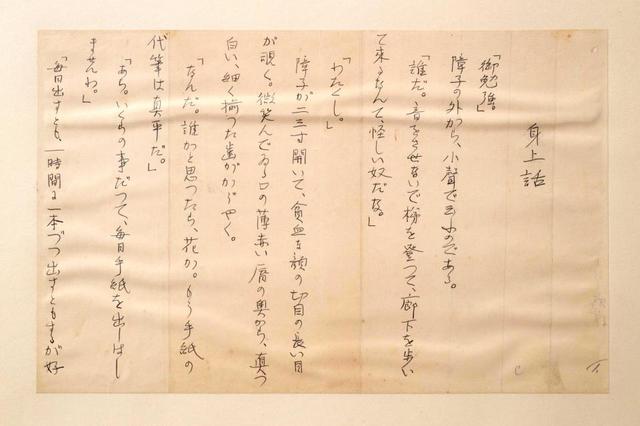 身上話
「御勉強。」
障子の外から、小聲で云ふのである。
「誰だ。音をさせないで梯を登つて、廊下を歩い
て来るなんて、怪しい奴だな。」
「わたくし。」
障子が二三寸開いて、貧血な顔の切目の長い目
が覗く。微笑んでゐる口の薄赤い唇の奥から、真つ
白い、細く揃つた歯がかがやく。
「なんだ。誰かと思つたら、花か。もう手紙の
代筆は真平だ。」
「あら。いくらの事だつて、毎日手紙を出しはし
ませんわ。」
「毎日出すとも、一時間に一本づつ出すともするが好